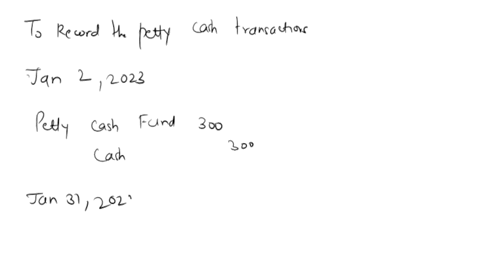 To Record the petty cash transactions
Jan 2, 2023
Petty cash Fund 300
Cash 300
Jan 31, 202